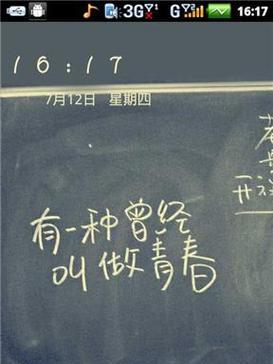 3G
G
16:17
16:17
7月12日 星期四
有一种曾经
叫做青春